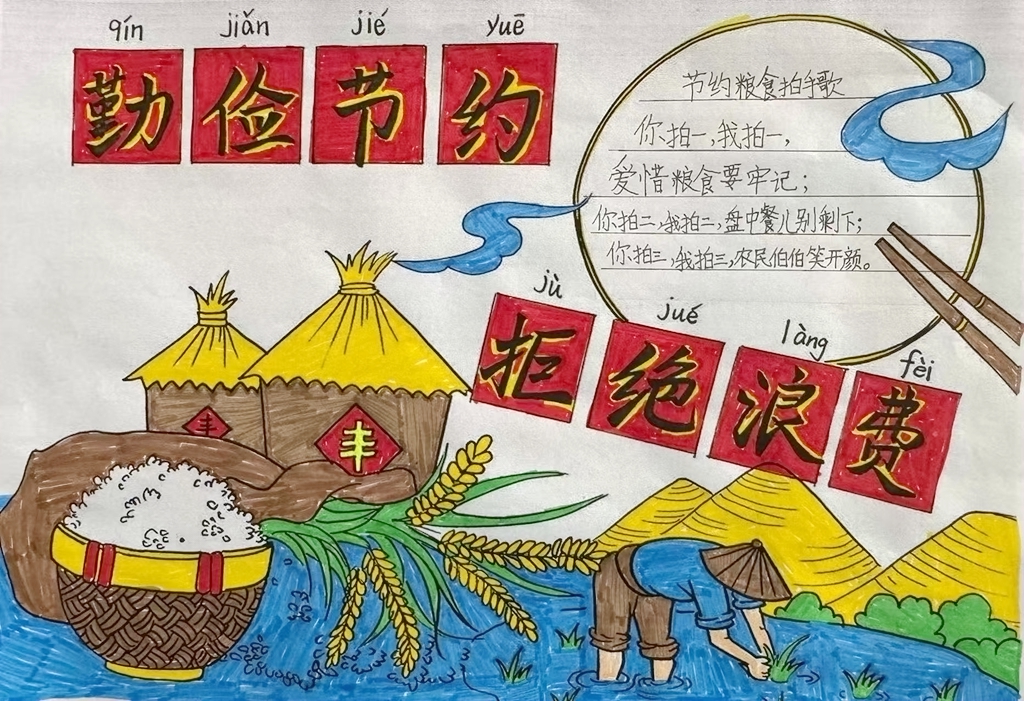 qín jiǎn jié yuē
勤俭节约
节约粮食拍手歌
你拍一,我拍一,
爱惜粮食要牢记;
你拍二,我拍二,盘中餐儿别剩下;
你拍三,我拍三,农民伯伯笑开颜。
jù jué làng fèi
拒绝浪费
丰
丰